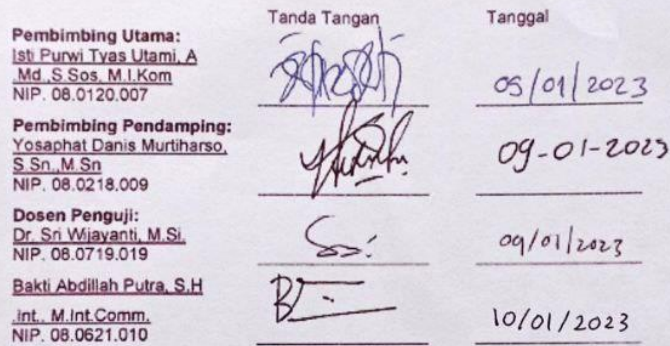 Tanda Tangan Tanggal
Pembimbing Utama:
Isti Purwi Tyas Utami, A
.Md.,S.Sos, M.I.Kom
NIP. 08.0120.007
05/01/2023
Pembimbing Pendamping:
Yosaphat Danis Murtiharso,
S.Sn.,M.Sn
NIP. 08.0218.009
09-01-2023
Dosen Penguji:
Dr. Sri Wijayanti, M.Si.
NIP. 08.0719.019
09/01/2023
Bakti Abdillah Putra, S.H
.Int., M.Int.Comm.
NIP. 08.0621.010
10/01/2023